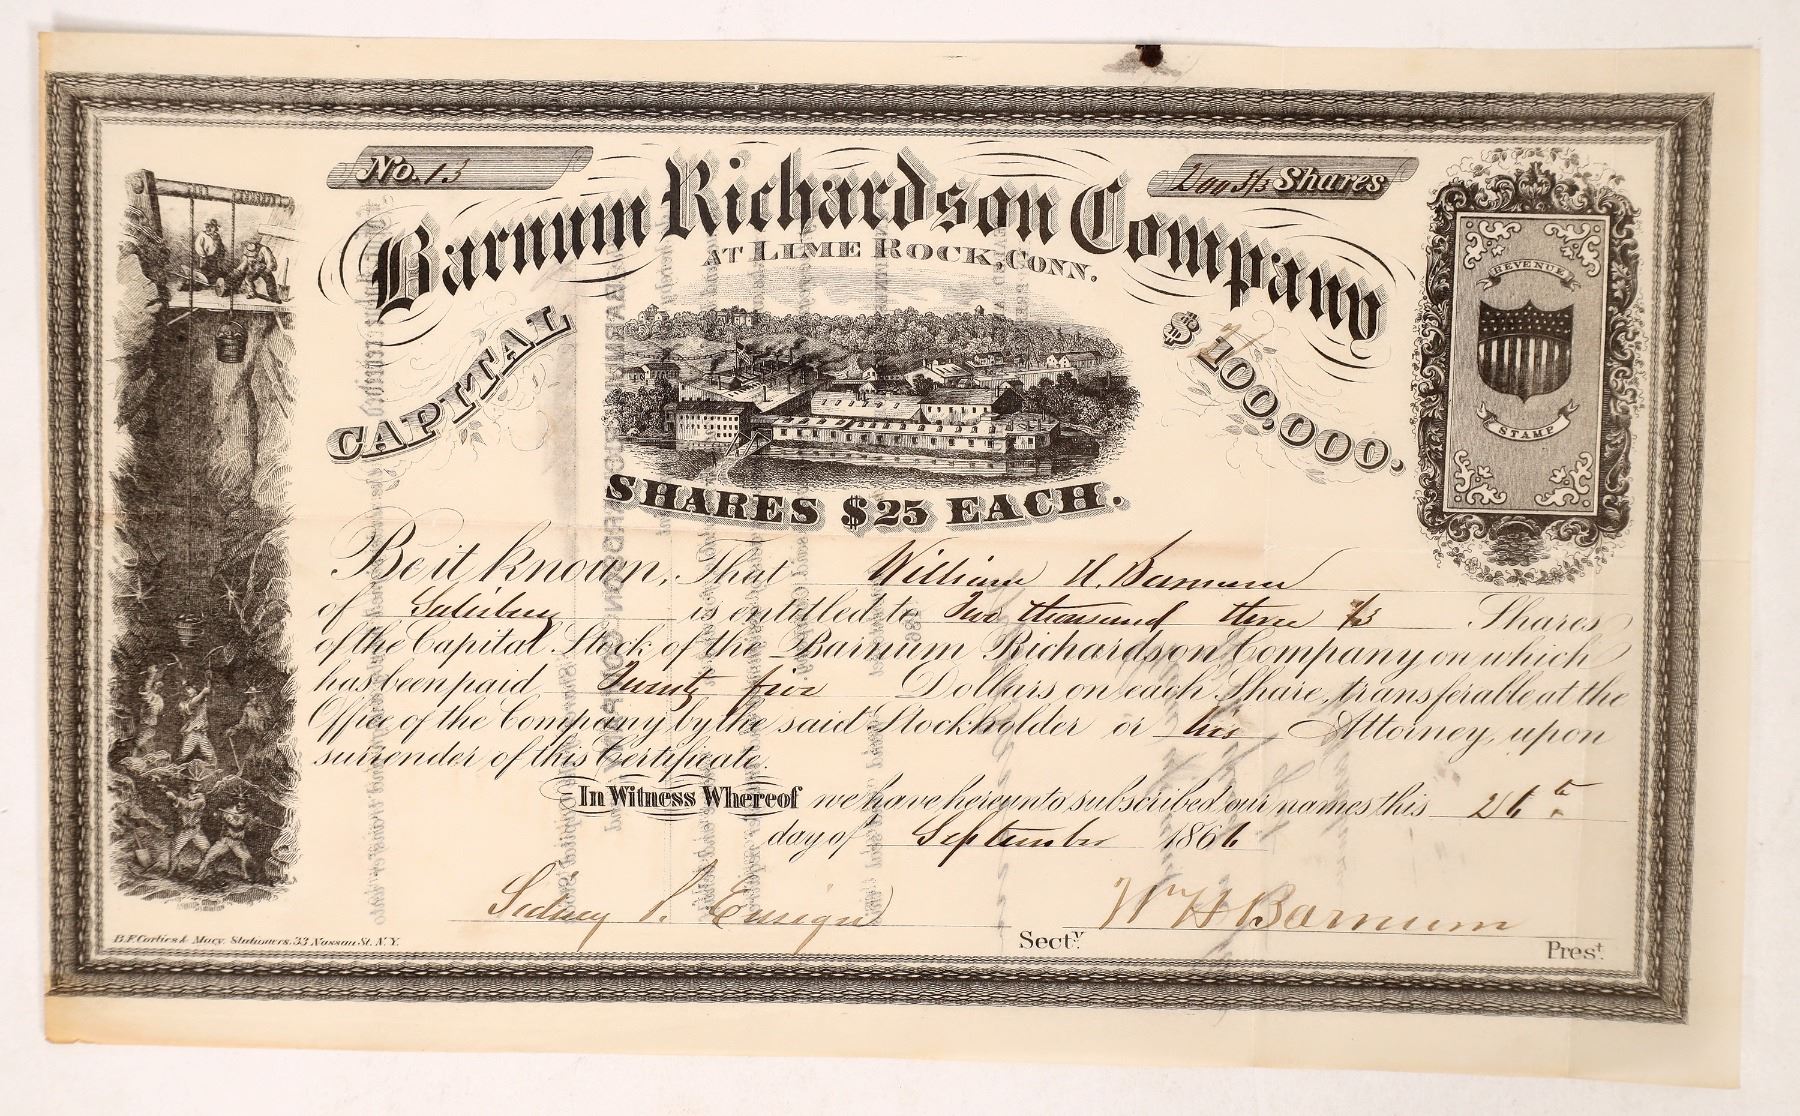 No. 13
Shares
Barnum Richardson Company
AT LIME ROCK, CONN.
CAPITAL
$ 00,000.
REVENUE
STAMP
SHARES $25 EACH.
Be it known, That William H. Barnum
of Salisbury is entitled to Two thousand three 1/3 Shares
of the Capital Stock of the Barnum Richardson Company on which
has been paid Twenty five Dollars on each Share, transferable at the
Office of the Company by the said Stockholder or his Attorney, upon
surrender of this Certificate.
In Witness Whereof we have hereunto subscribed our names this 26th
day of September 1866
Sidney P. Ensign Secty.
Wm H Barnum Prest.
B.F. Corlies & Macy, Stationers, 33 Nassau St. N.Y.